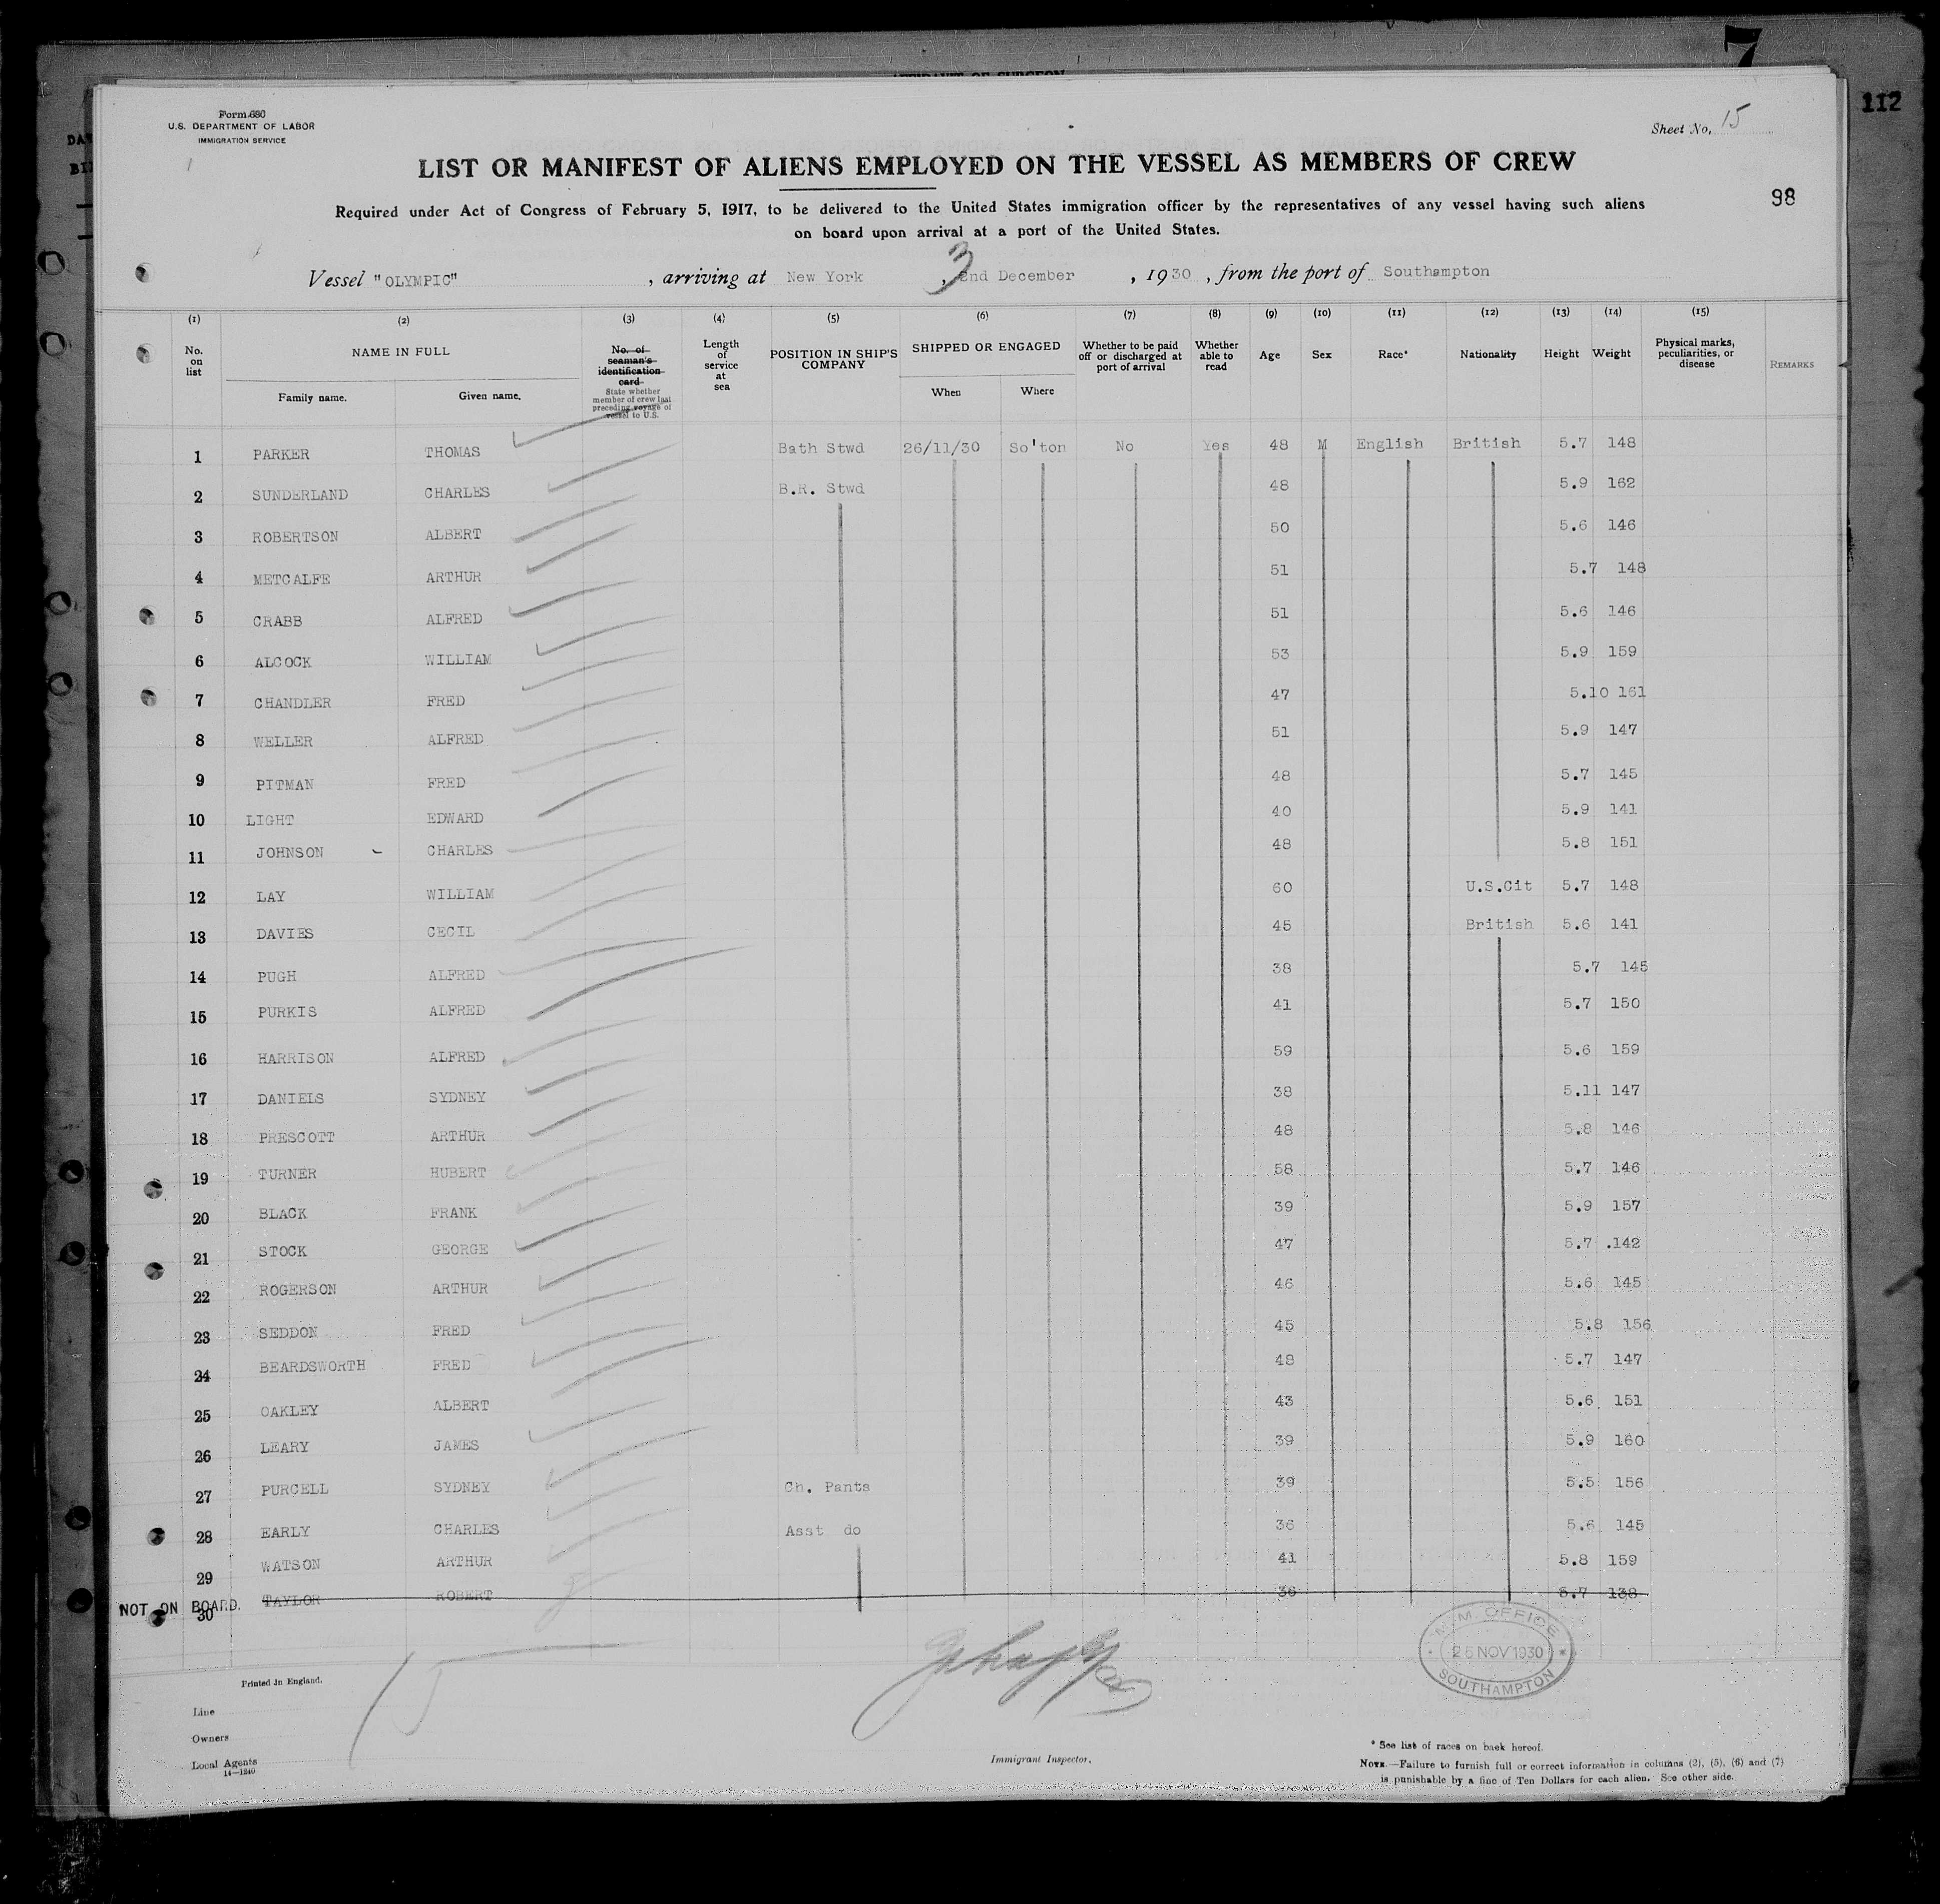 7
112
AFFIDAVIT OF SURGEON
Form 680
U.S. DEPARTMENT OF LABOR
IMMIGRATION SERVICE
Sheet No. 15
LIST OR MANIFEST OF ALIENS EMPLOYED ON THE VESSEL AS MEMBERS OF CREW
98
Required under Act of Congress of February 5, 1917, to be delivered to the United States immigration officer by the representatives of any vessel having such aliens
on board upon arrival at a port of the United States.
Vessel "OLYMPIC", arriving at New York, 3 2nd December, 1930, from the port of Southampton
(1) (2) (3) (4) (5) (6) (7) (8) (9) (10) (11) (12) (13) (14) (15)
No. on list NAME IN FULL Family name. Given name. No. of seaman's identification card State whether member of crew last preceding voyage of vessel to U.S. Length of service at sea POSITION IN SHIP'S COMPANY SHIPPED OR ENGAGED When Where Whether to be paid off or discharged at port of arrival Whether able to read Age Sex Race* Nationality Height Weight Physical marks, peculiarities, or disease REMARKS
1 PARKER THOMAS Bath Stwd 26/11/30 So'ton No Yes 48 M English British 5.7 148
2 SUNDERLAND CHARLES B.R. Stwd 48 5.9 162
3 ROBERTSON ALBERT 50 5.6 146
4 METCALFE ARTHUR 51 5.7 148
5 CRABB ALFRED 51 5.6 146
6 ALCOCK WILLIAM 53 5.9 159
7 CHANDLER FRED 47 5.10 161
8 WELLER ALFRED 51 5.9 147
9 PITMAN FRED 48 5.7 145
10 LIGHT EDWARD 40 5.9 141
11 JOHNSON CHARLES 48 5.8 151
12 LAY WILLIAM 60 U.S.Cit 5.7 148
13 DAVIES CECIL 45 British 5.6 141
14 PUGH ALFRED 38 5.7 145
15 PURKIS ALFRED 41 5.7 150
16 HARRISON ALFRED 59 5.6 159
17 DANIELS SYDNEY 38 5.11 147
18 PRESCOTT ARTHUR 48 5.8 146
19 TURNER HUBERT 58 5.7 146
20 BLACK FRANK 39 5.9 157
21 STOCK GEORGE 47 5.7 .142
22 ROGERSON ARTHUR 46 5.6 145
23 SEDDON FRED 45 5.8 156
24 BEARDSWORTH FRED 48 5.7 147
25 OAKLEY ALBERT 43 5.6 151
26 LEARY JAMES 39 5.9 160
27 PURCELL SYDNEY Ch. Pants 39 5.5 156
28 EARLY CHARLES Asst do 36 5.6 145
29 WATSON ARTHUR 41 5.8 159
NOT ON BOARD. 30 TAYLOR ROBERT 36 5.7 138
M.M. OFFICE
25 NOV 1930
SOUTHAMPTON
Printed in England.
15
Line
Owners
Local Agents
14—1240
Immigrant Inspector.
* See list of races on back hereof.
NOTE.—Failure to furnish full or correct information in columns (2), (5), (6) and (7)
is punishable by a fine of Ten Dollars for each alien. See other side.